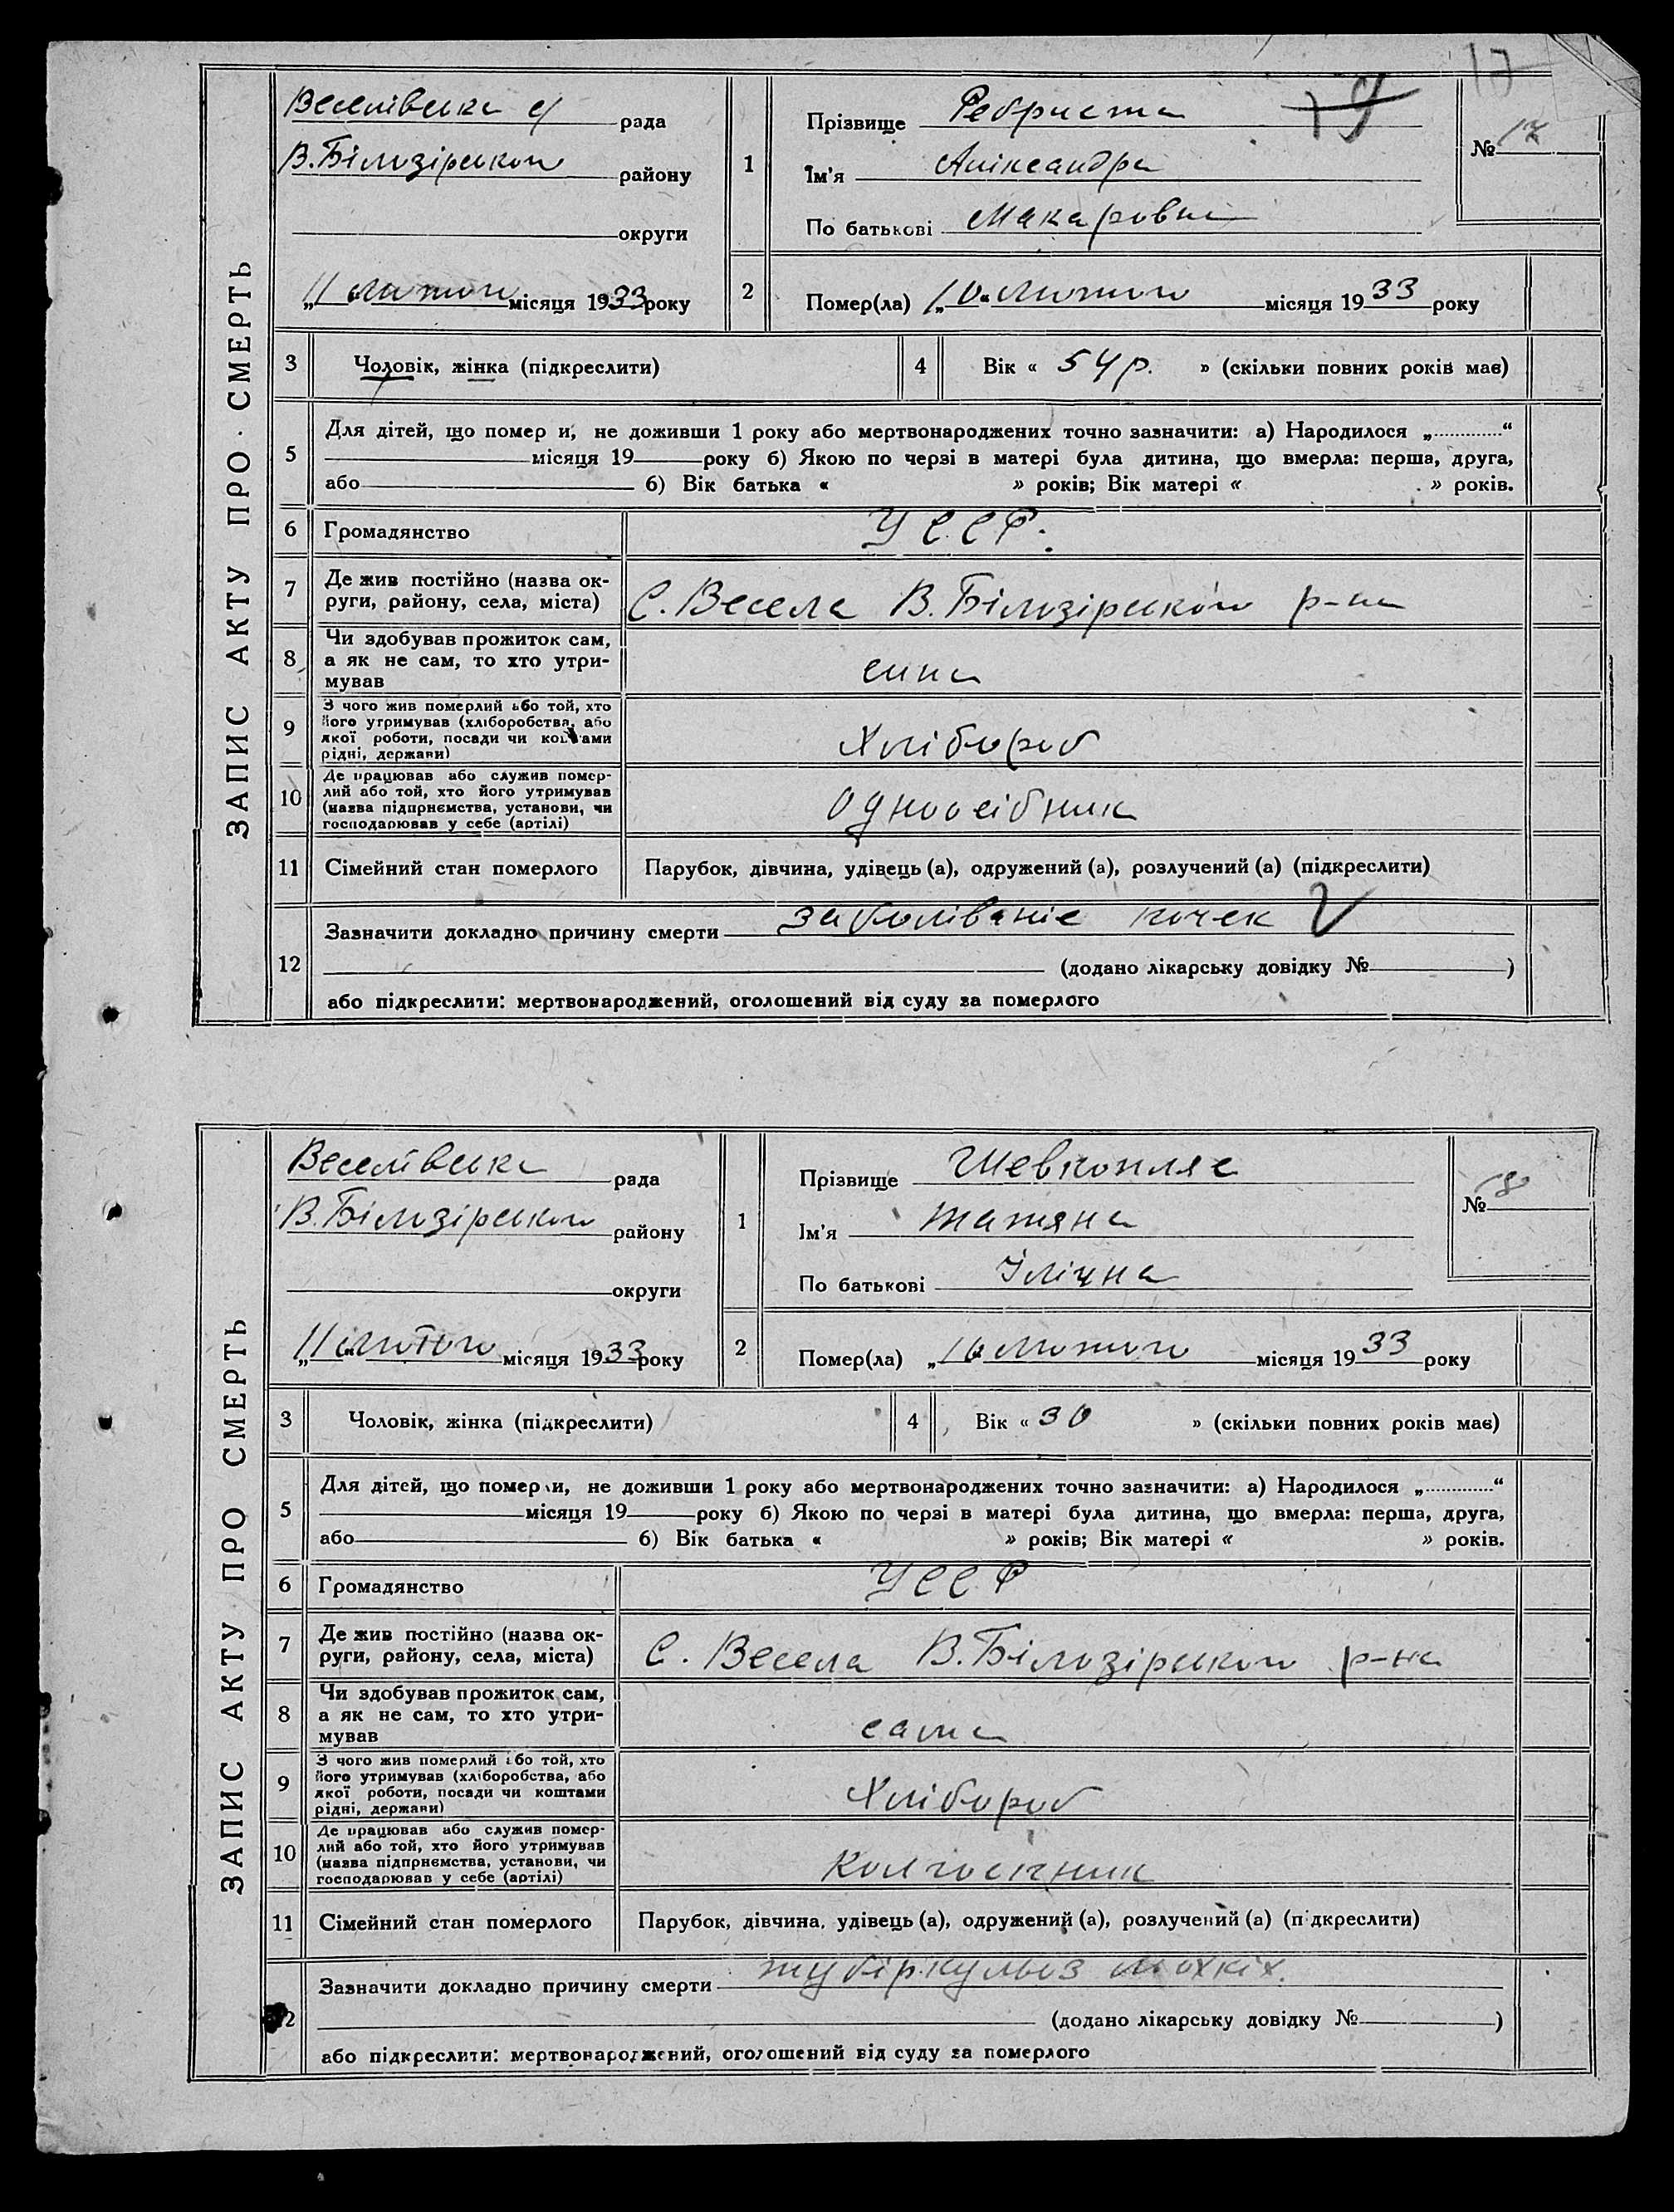 17
19
ЗАПИС АКТУ ПРО СМЕРТЬ
Веселівська с/ рада
В.Білозірського району
округи
„11“ лютого місяця 1933 року
1
Прізвище Ребриста
Ім'я Аліксандра
По батькові Макаровна
№ 17
2
Помер(ла) „10“ лютого місяця 1933 року
3 Чоловік, жінка (підкреслити)
4 Вік « 54 р. » (скільки повних років має)
5
Для дітей, що померли, не доживши 1 року або мертвонароджених точно зазначити: а) Народилося „............“
місяця 19 року б) Якою по черзі в матері була дитина, що вмерла: перша, друга,
або б) Вік батька « » років; Вік матері « » років.
6 Громадянство УССР.
7 Де жив постійно (назва ок-
руги, району, села, міста) С. Весела В.Білозірського р-на
8 Чи здобував прожиток сам,
а як не сам, то хто утри-
мував
сина
9 З чого жив померлий або той, хто
його утримував (хліборобства, або
якої роботи, посади чи коштами
рідні, держави)
Хлібороб
10 Де працював або служив помер-
лий або той, хто його утримував
(назва підприємства, установи, чи
господарював у себе (артілі)
Одноосібник
11 Сімейний стан померлого Парубок, дівчина, удівець (а), одружений (а), розлучений (а) (підкреслити)
12
Зазначити докладно причину смерти заболіваніе почек
(додано лікарську довідку № )
або підкреслити: мертвонароджений, оголошений від суду за померлого
ЗАПИС АКТУ ПРО СМЕРТЬ
Веселівська рада
В.Білозірського району
округи
„11“ лютого місяця 1933 року
1
Прізвище Шевкопляс
Ім'я Татяна
По батькові Ілічна
№ 18
2
Помер(ла) „10“ лютого місяця 1933 року
3 Чоловік, жінка (підкреслити)
4 Вік « 30 » (скільки повних років має)
5
Для дітей, що померли, не доживши 1 року або мертвонароджених точно зазначити: а) Народилося „............“
місяця 19 року б) Якою по черзі в матері була дитина, що вмерла: перша, друга,
або б) Вік батька « » років; Вік матері « » років.
6 Громадянство УССР
7 Де жив постійно (назва ок-
руги, району, села, міста) С. Весела В.Білозірського р-на
8 Чи здобував прожиток сам,
а як не сам, то хто утри-
мував
сама
9 З чого жив померлий або той, хто
його утримував (хліборобства, або
якої роботи, посади чи коштами
рідні, держави)
Хлібороб
10 Де працював або служив помер-
лий або той, хто його утримував
(назва підприємства, установи, чи
господарював у себе (артілі)
Колгоспник
11 Сімейний стан померлого Парубок, дівчина, удівець (а), одружений (а), розлучений (а) (підкреслити)
12
Зазначити докладно причину смерти тубіркульоз льохкіх.
(додано лікарську довідку № )
або підкреслити: мертвонароджений, оголошений від суду за померлого